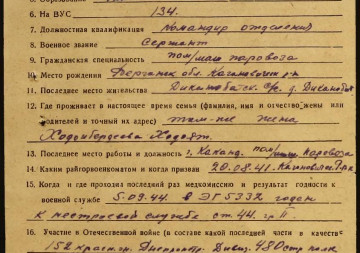 6. На ВУС 134.
7. Должностная квалификация Командир отделения
8. Военное звание Сержант
9. Гражданская специальность пом/маш паровоза
10. Место рождения Ферганск. обл. Кагановичск. р-н
11. Последнее место жительства с/с д.
12. Где проживает в настоящее время семья (фамилия, имя и отчество жены или
родителей и точный их адрес) там-же жена

13. Последнее место работы и должность г. Коканд. пом/маш Паровоза
14. Каким райгорвоенкоматом и когда призван 20.08.41.
15. Когда и где проходил последний раз медкомиссию и результат годности к
военной службе 5.09.44. в ЭГ5332 годен
к нестроевой службе ст. 44. гр II
16. Участие в Отечественной войне (в составе какой последней части в качестве
152 Днепропетр. Дивиз. 480 стр полк